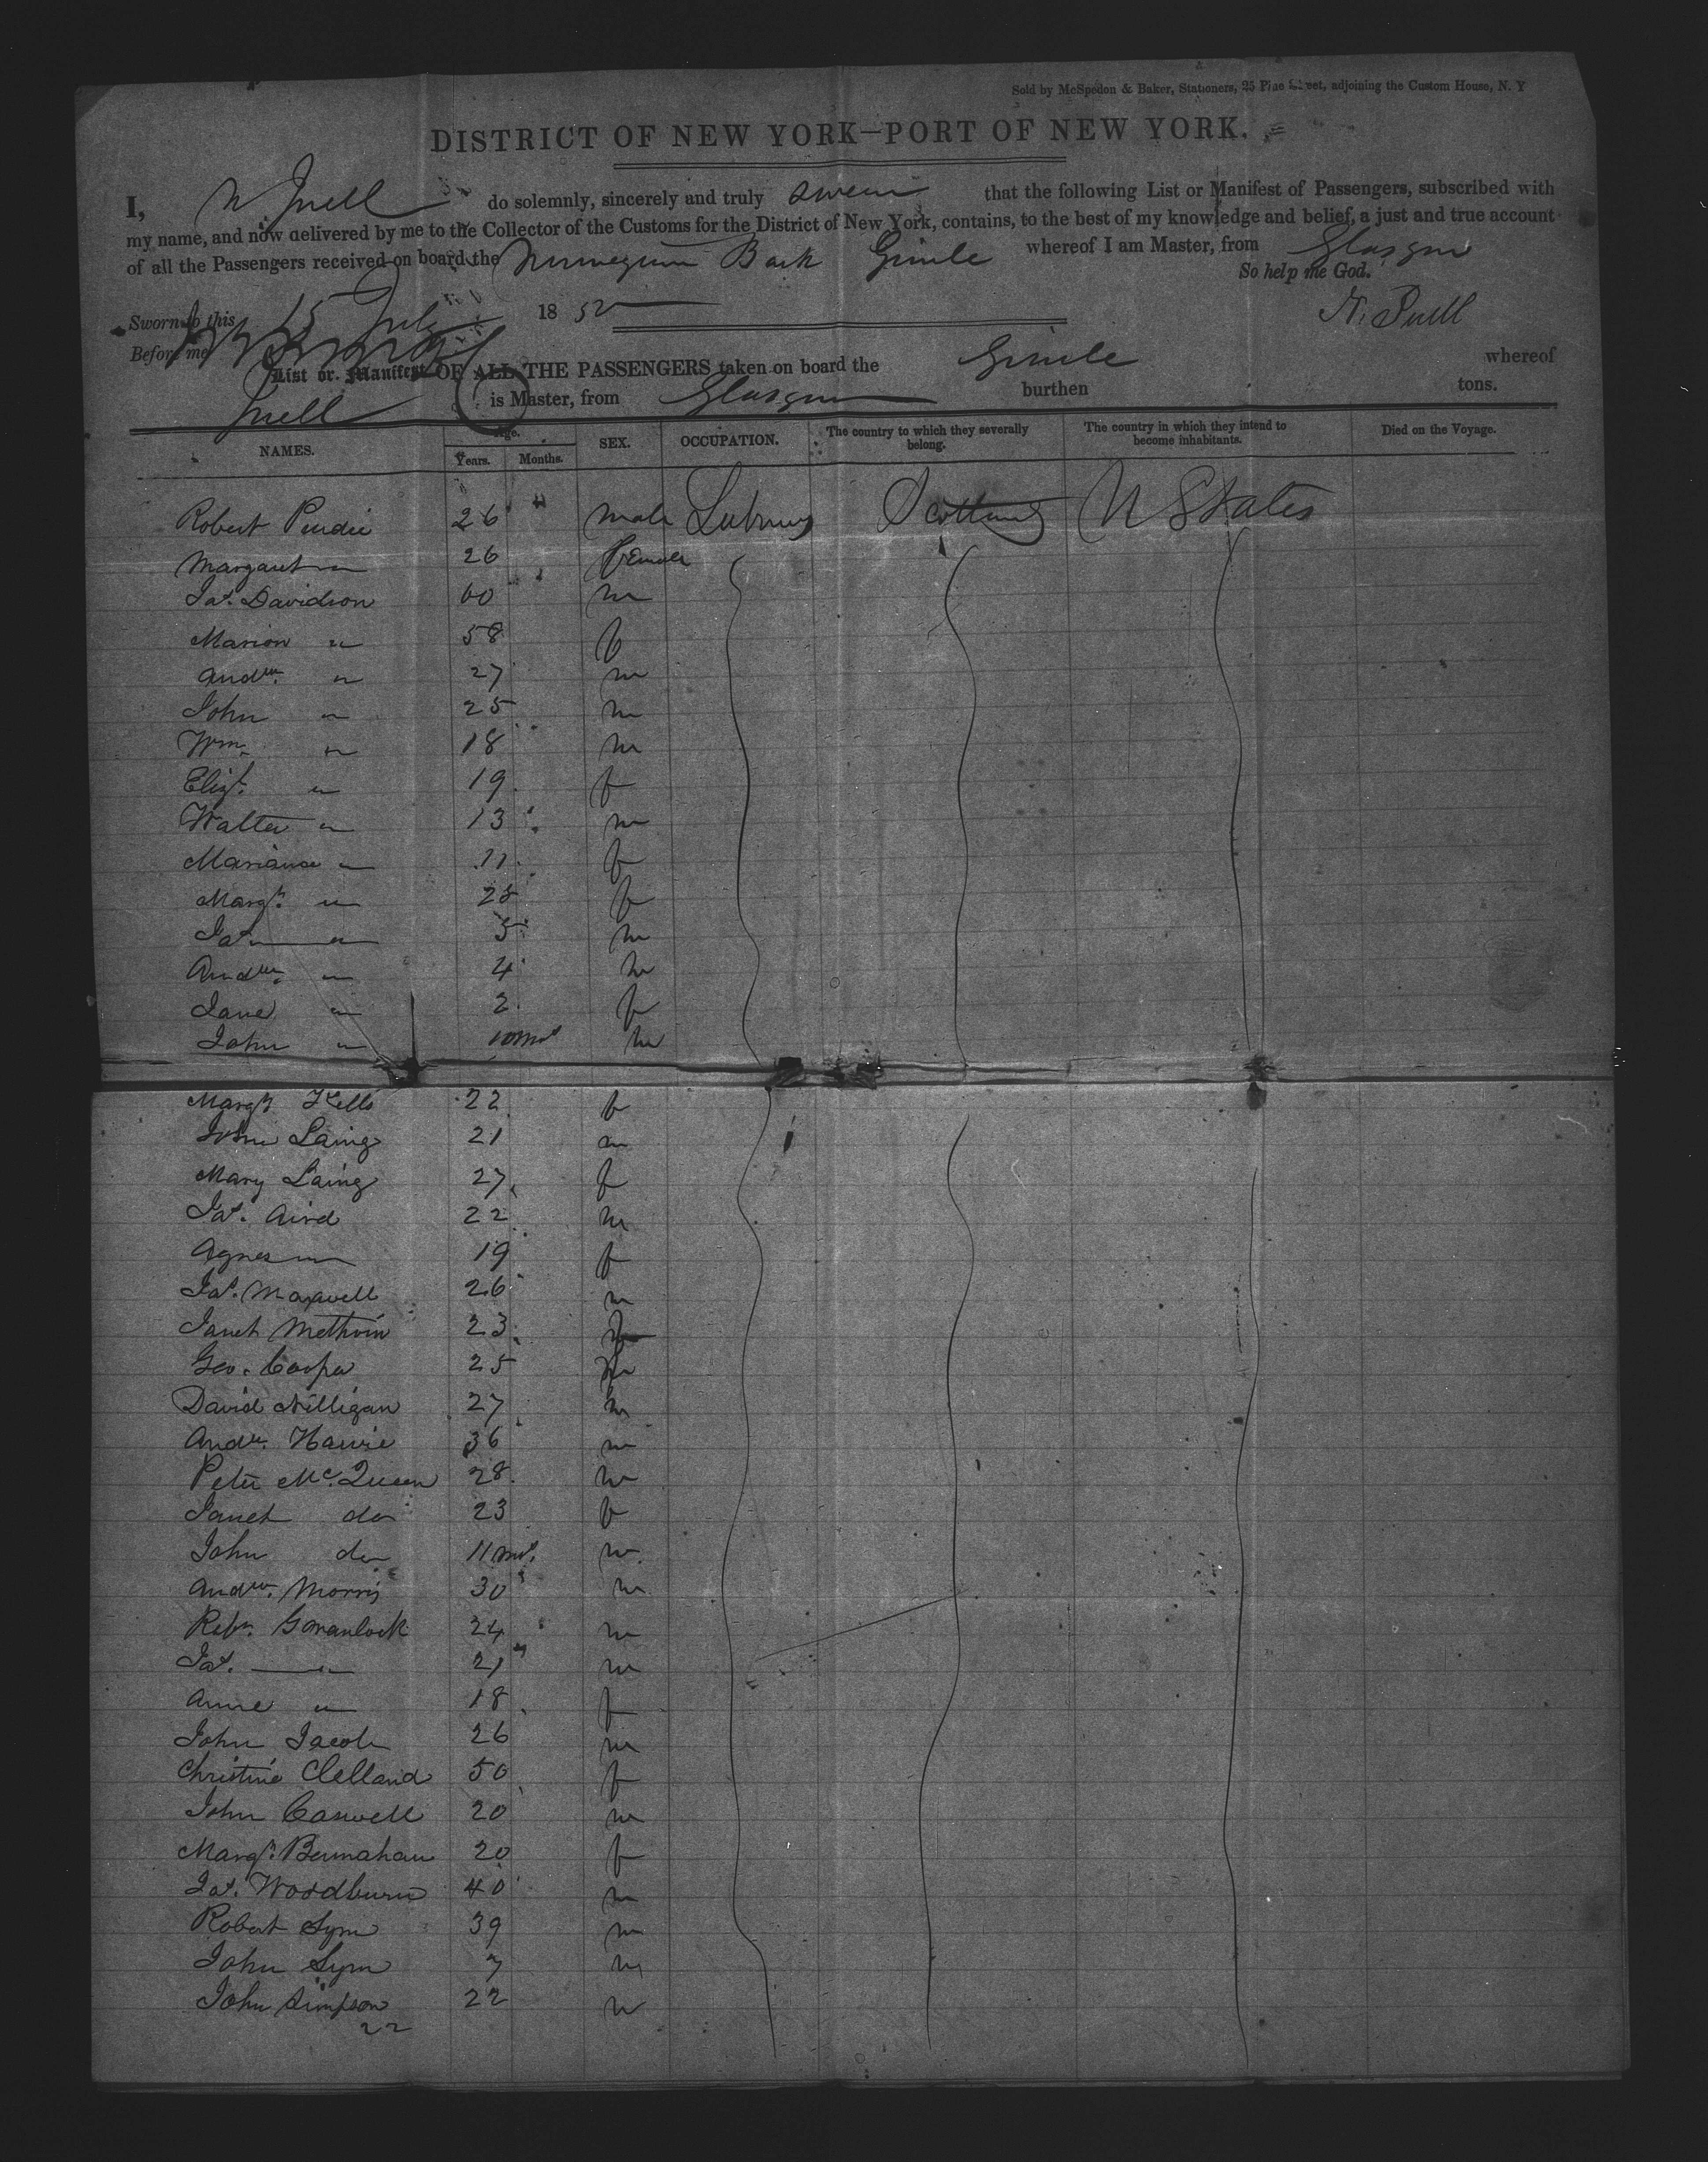 Sold by McSpedon & Baker, Stationers, 25 Pine Street, adjoining the Custom House, N. Y
DISTRICT OF NEW YORK—PORT OF NEW YORK.
I, do solemnly, sincerely and truly swear that the following List or Manifest of Passengers, subscribed with
my name, and now delivered by me to the Collector of the Customs for the District of New York, contains, to the best of my knowledge and belief, a just and true account
of all the Passengers received on board the Norwegian Bark whereof I am Master, from Glasgow
So help me God.
Sworn to this 15 July 1852
Before me
List or Manifest OF ALL THE PASSENGERS taken on board the whereof
is Master, from Glasgow burthen tons.
NAMES. Age. Years. Months. SEX. OCCUPATION. The country to which they severally belong. The country in which they intend to become inhabitants. Died on the Voyage.
Robert Purdie 26 " male Labourer Scotland U States
Margaret " 26 Female
Jas. Davidson 60 m
Marion " 58 f
Andw. " 27 m
John " 25 m
Wm. " 18 m
Elizt. " 19 f
Walter " 13 m
Marianne " 11 f
Margt. " 28 f
Jas. " 5 m
Andw. " 4 m
Jane " 2 f
John " 10 mos m
Margt 22 f
John Laing 21 m
Mary Laing 27 f
Jas. Aird 22 m
Agnes " 19 f
Jas. Maxwell 26 m
Janet Methvin 23 f
Geo. Cooper 25 m
David Milligan 27 m
Andw. Hawie 36 m
Peter McQueen 28 m
Janet do 23 f
John do 11 mos. m
Andw. Morris 30 m
Robt. Gowanlock 24 m
Jas. " 21 m
Anne " 18 f
John Jacob 26 m
Christine Clelland 50 f
John Caswell 20 m
Margt. 20 f
Jas. Woodburn 40 m
Robert Sym 39 m
John Sym 7 m
John Simpson 22 m
22